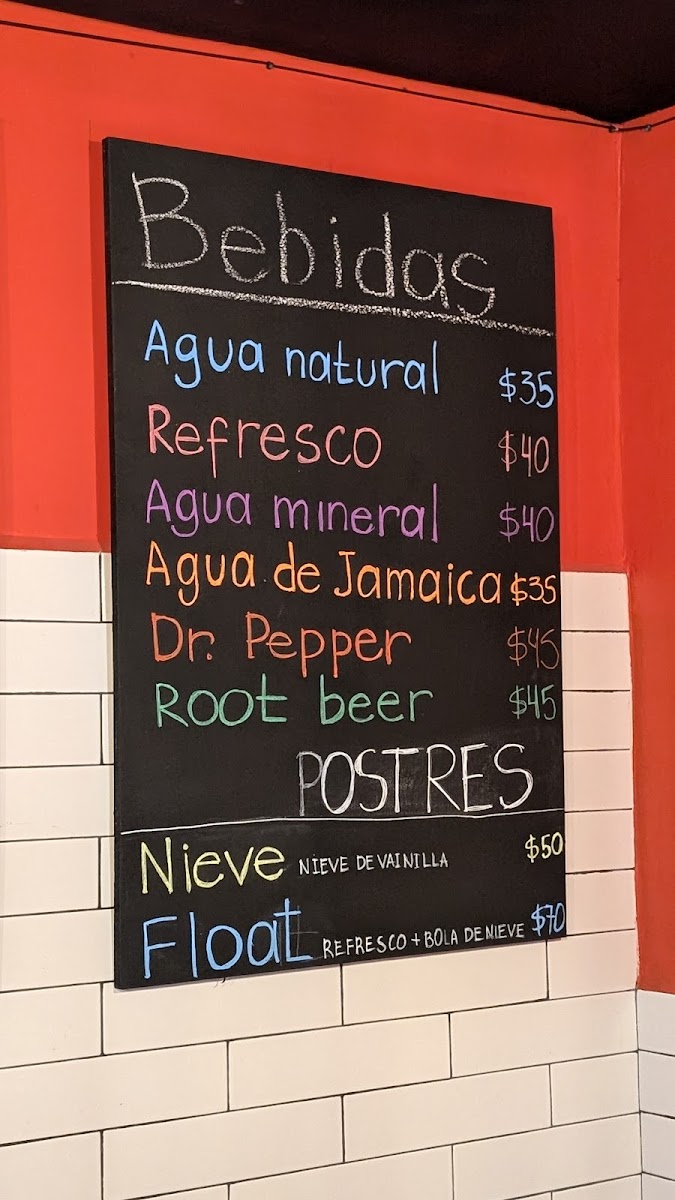 Bebidas
Agua natural $35
Refresco $40
Agua mineral $40
Agua de Jamaica $35
Dr. Pepper $45
Root beer $45
POSTRES
Nieve NIEVE DE VAINILLA $50
Float REFRESCO + BOLA DE NIEVE $70